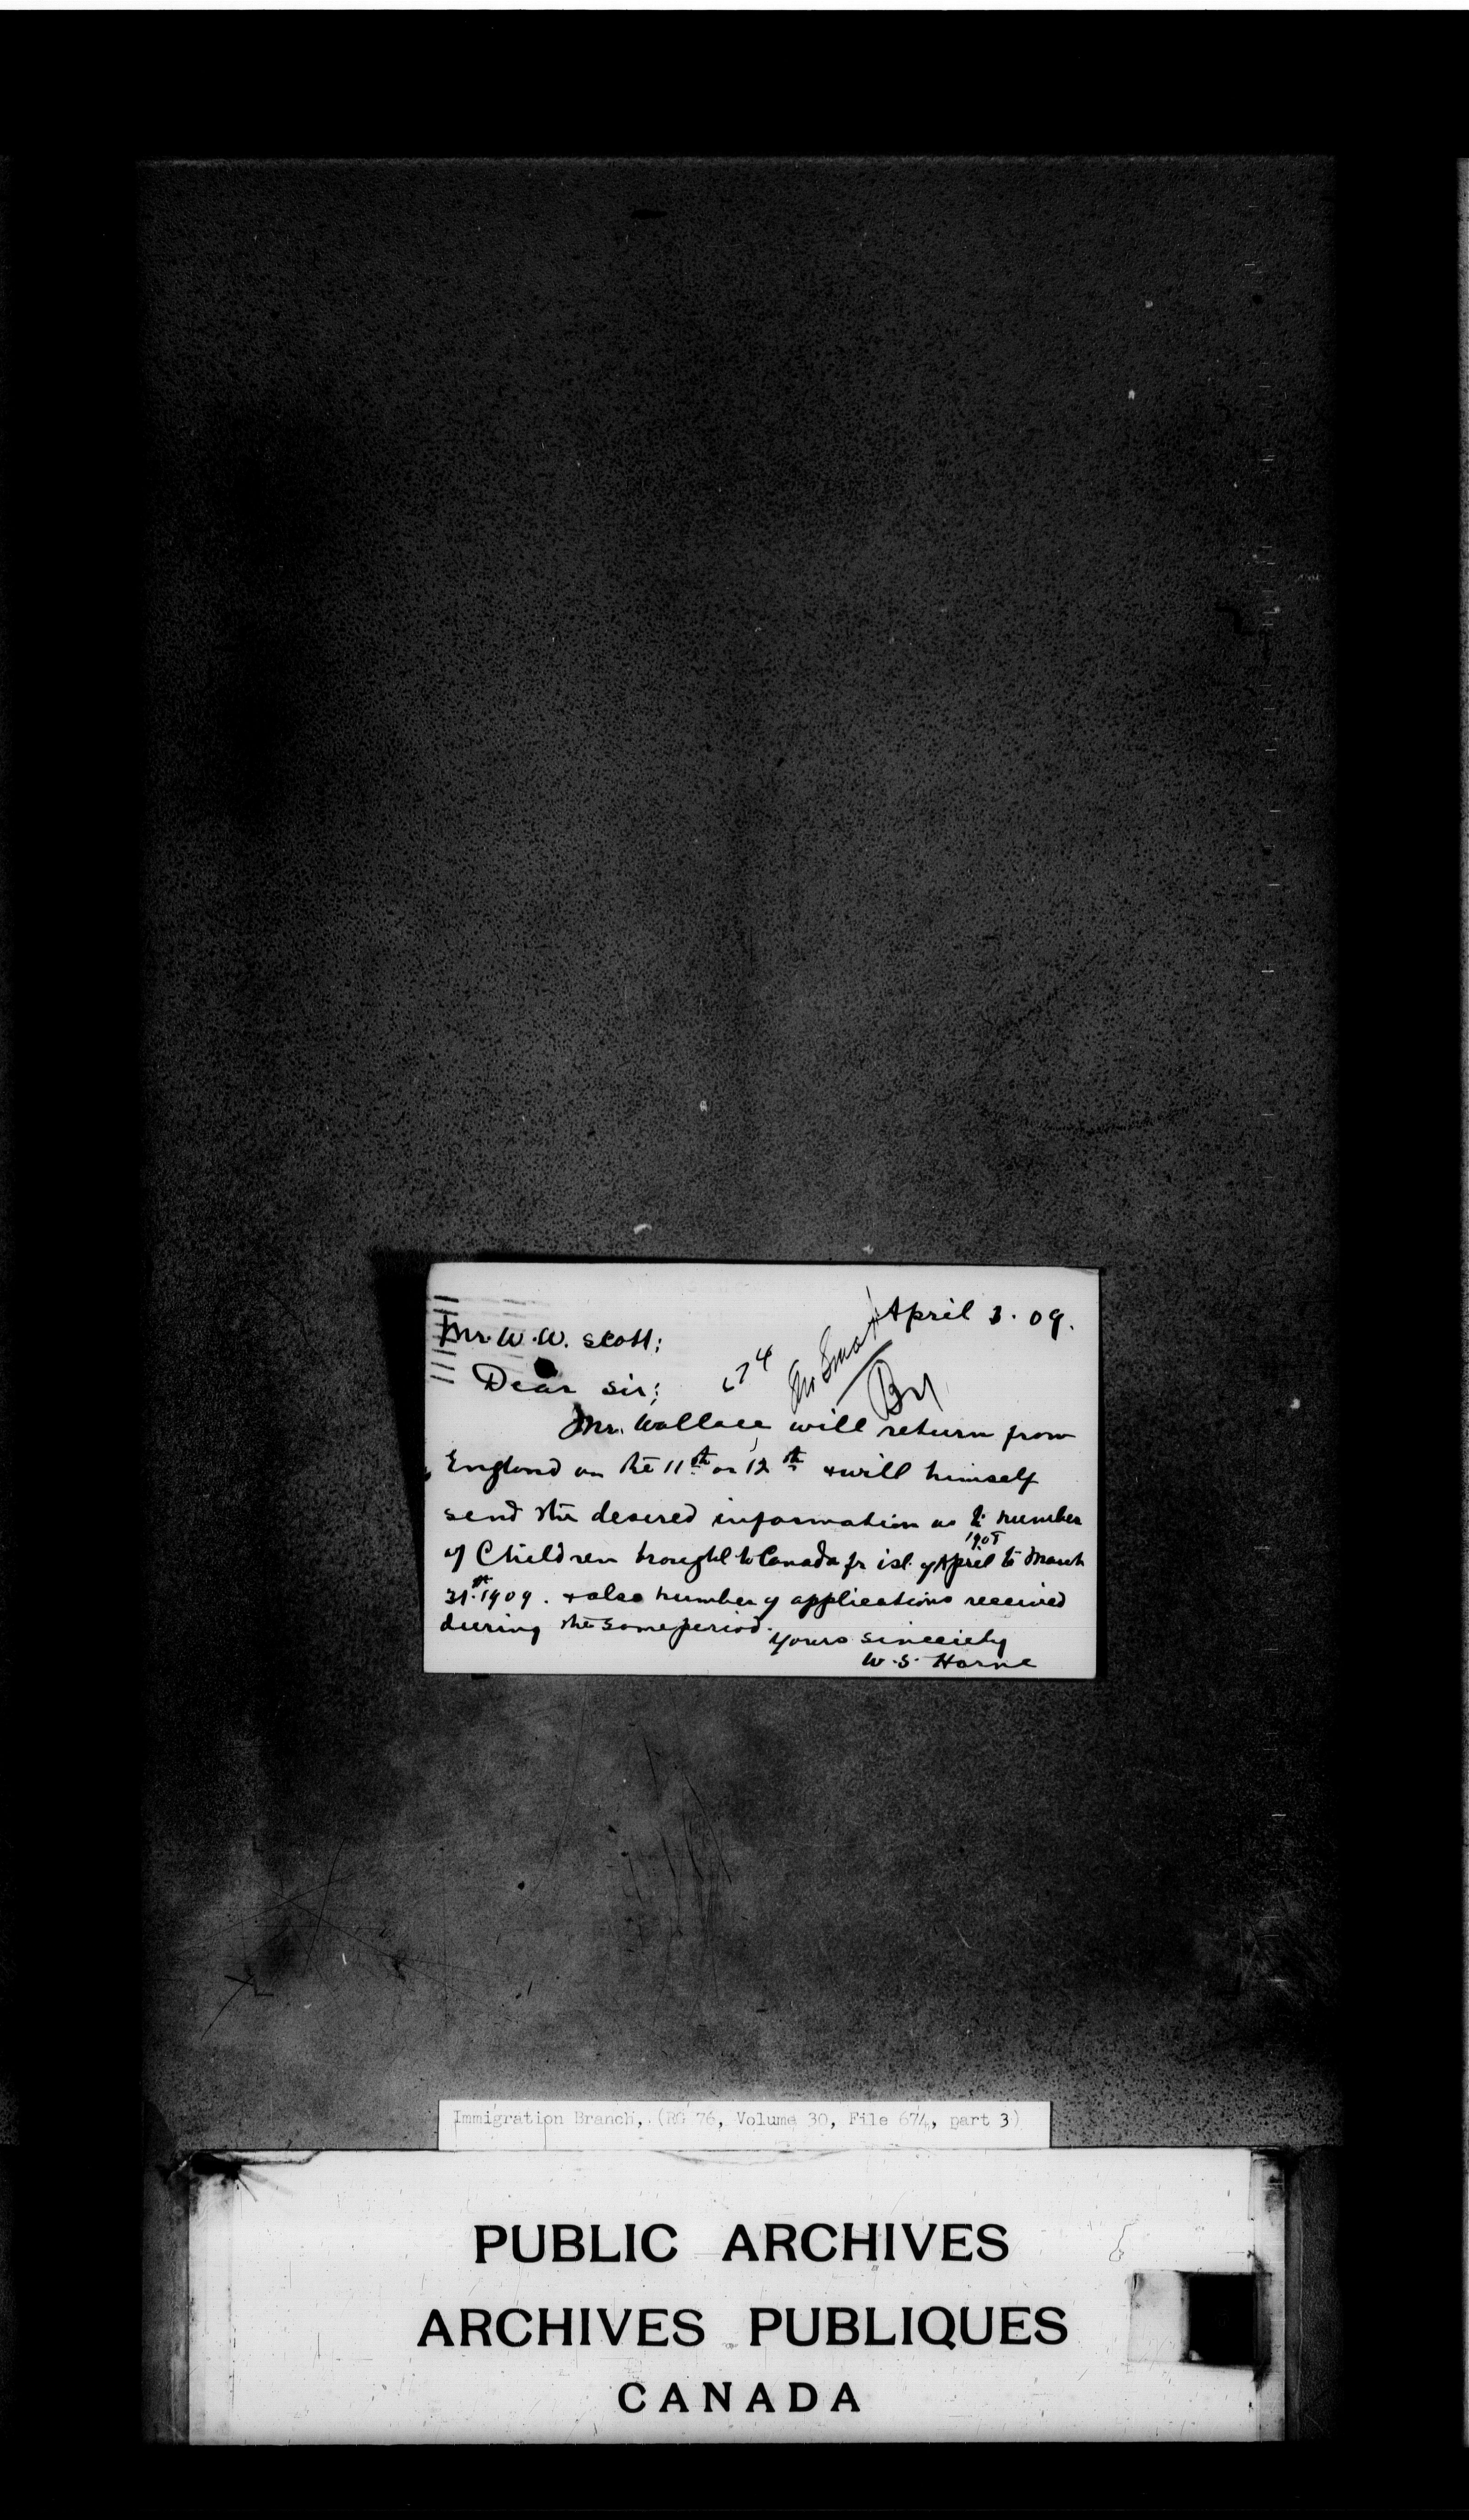 April 3. 09.
Mr. W. W. Scott;
674
Dear Sir;
Mr. Wallace, will return from
England on the 11th or 12th & will himself
send the desired information as to number
of Children brought to Canada fr 1st. of April 1908 to March
31st. 1909. & also number of applications received
during the same period.
Yours sincerely
W. S. Horne
Immigration Branch, (RG 76, Volume 30, File 674, part 3)
PUBLIC ARCHIVES
ARCHIVES PUBLIQUES
CANADA